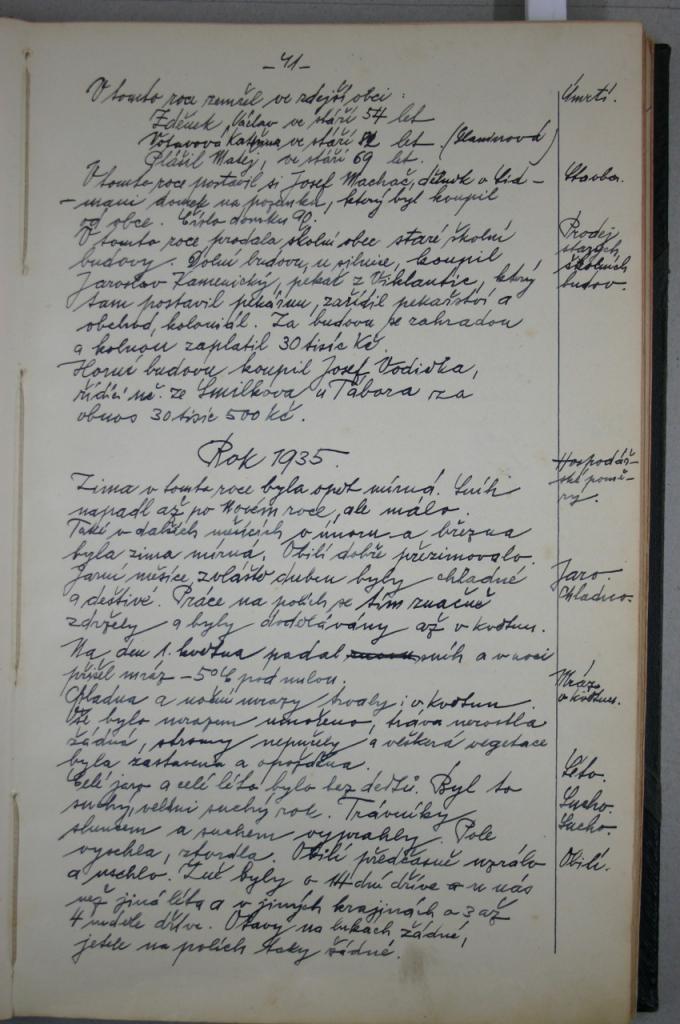 - 41 -
V tomto roce zemřel ve zdejší obci :
Úmrtí.
Zděnek, Václav ve stáří 54 let
Votavová Kateřina ve stáří let
Plášil Matěj, ve stáří 69 let.
V tomto roce postavil si Josef Machač, dělník v
Stavba.
domek na pozemku, který byl koupil
od obce. Číslo domku 90.
V tomto roce prodala školní obec staré školní
Prodej
starých
budovy. Dolní budovu, u silnice, koupil
školních
Jaroslav Kamenický, pekař z Viklantic, který
budov.
tam postavil pekárnu, zařídil pekařství a
obchod, koloniál. Za budovu se zahradou
a kolnou zaplatil 30 tisíc Kč.
Horní budovu koupil Josef Vodička,
řídící uč. ze Smilkova u Tábora za
obnos 30 tisíc 500 kč.
Rok 1935.
Hospodář-
Zima v tomto roce byla opět mírná. Sníh
ské pomě-
napadl až po Novém roce, ale málo.
ry.
Také v dalších měsících v únoru a března
byla zima mírná. Obilí dobře přezimovalo.
Jarní měsíce, zvláště duben byly chladné
Jaro.
a deštivé. Práce na polích se tím značně
Chladno.
zdržely a byly dodělávány až v květnu.
Na den 1. května padal sníh a v noci
přišel mráz - 5°C pod nulou.
Mráz
Chladna a noční mrazy trvaly i v květnu.
v květnu.
Vše bylo mrazem umořeno, tráva nerostla
žádná, stromy nepučely a veškerá vegetace
byla zastavena a opožděna.
Celé jaro a celé léto bylo bez dešťů. Byl to
Léto.
suchý, velmi suchý rok. Trávníky
Sucho.
sluncem a suchem vyprahly. Pole
Sucho.
vyschla, ztvrdla. Obilí předčasně uzrálo
Obilí.
a uschlo. Žně byly o 14 dní dříve u nás
než jiná léta a v jiných krajinách o 3 až
4 neděle dříve. Otavy na lukách žádné,
jetele na polích taky žádné.